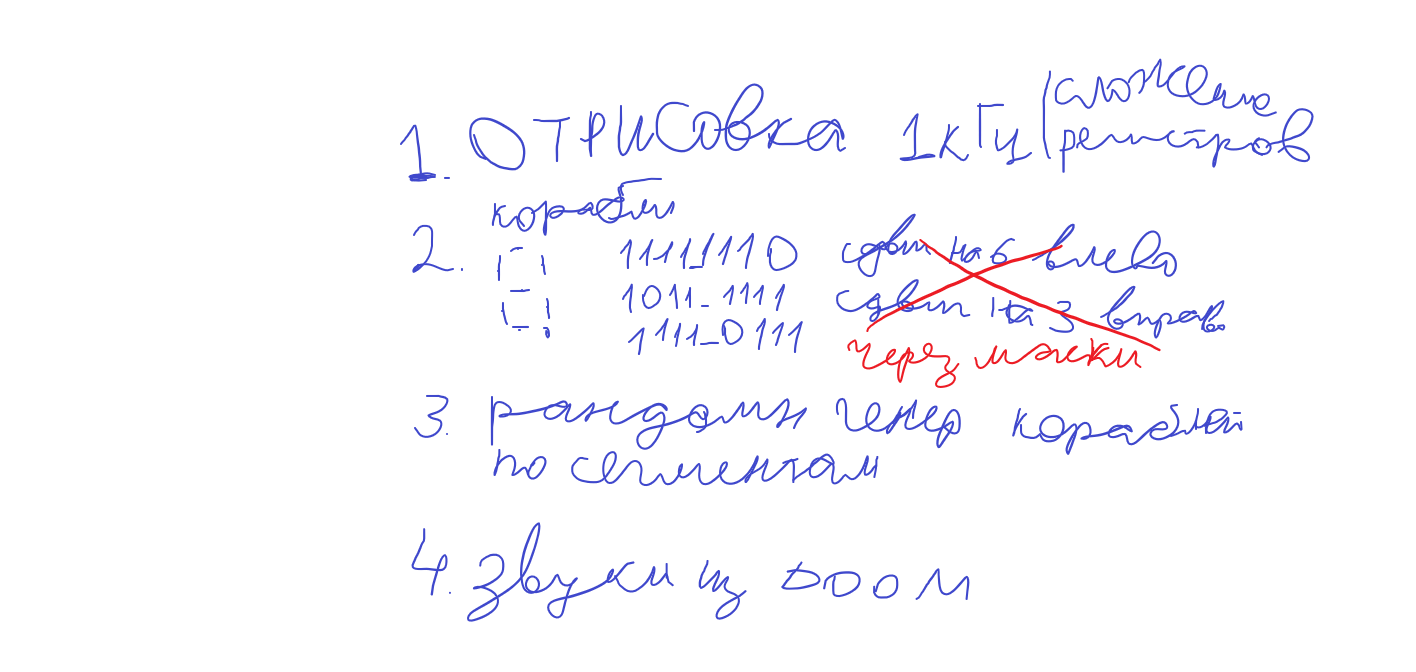 1. ОТРИСОВКА 1кГц сложение регистров
2. корабли
1111_1110 сдвиг на 6 влево
1011_1111 сдвиг на 3 вправо
1111_0111
через маски
3. рандомн генер кораблей
по сегментам
4. звуки из DOOM